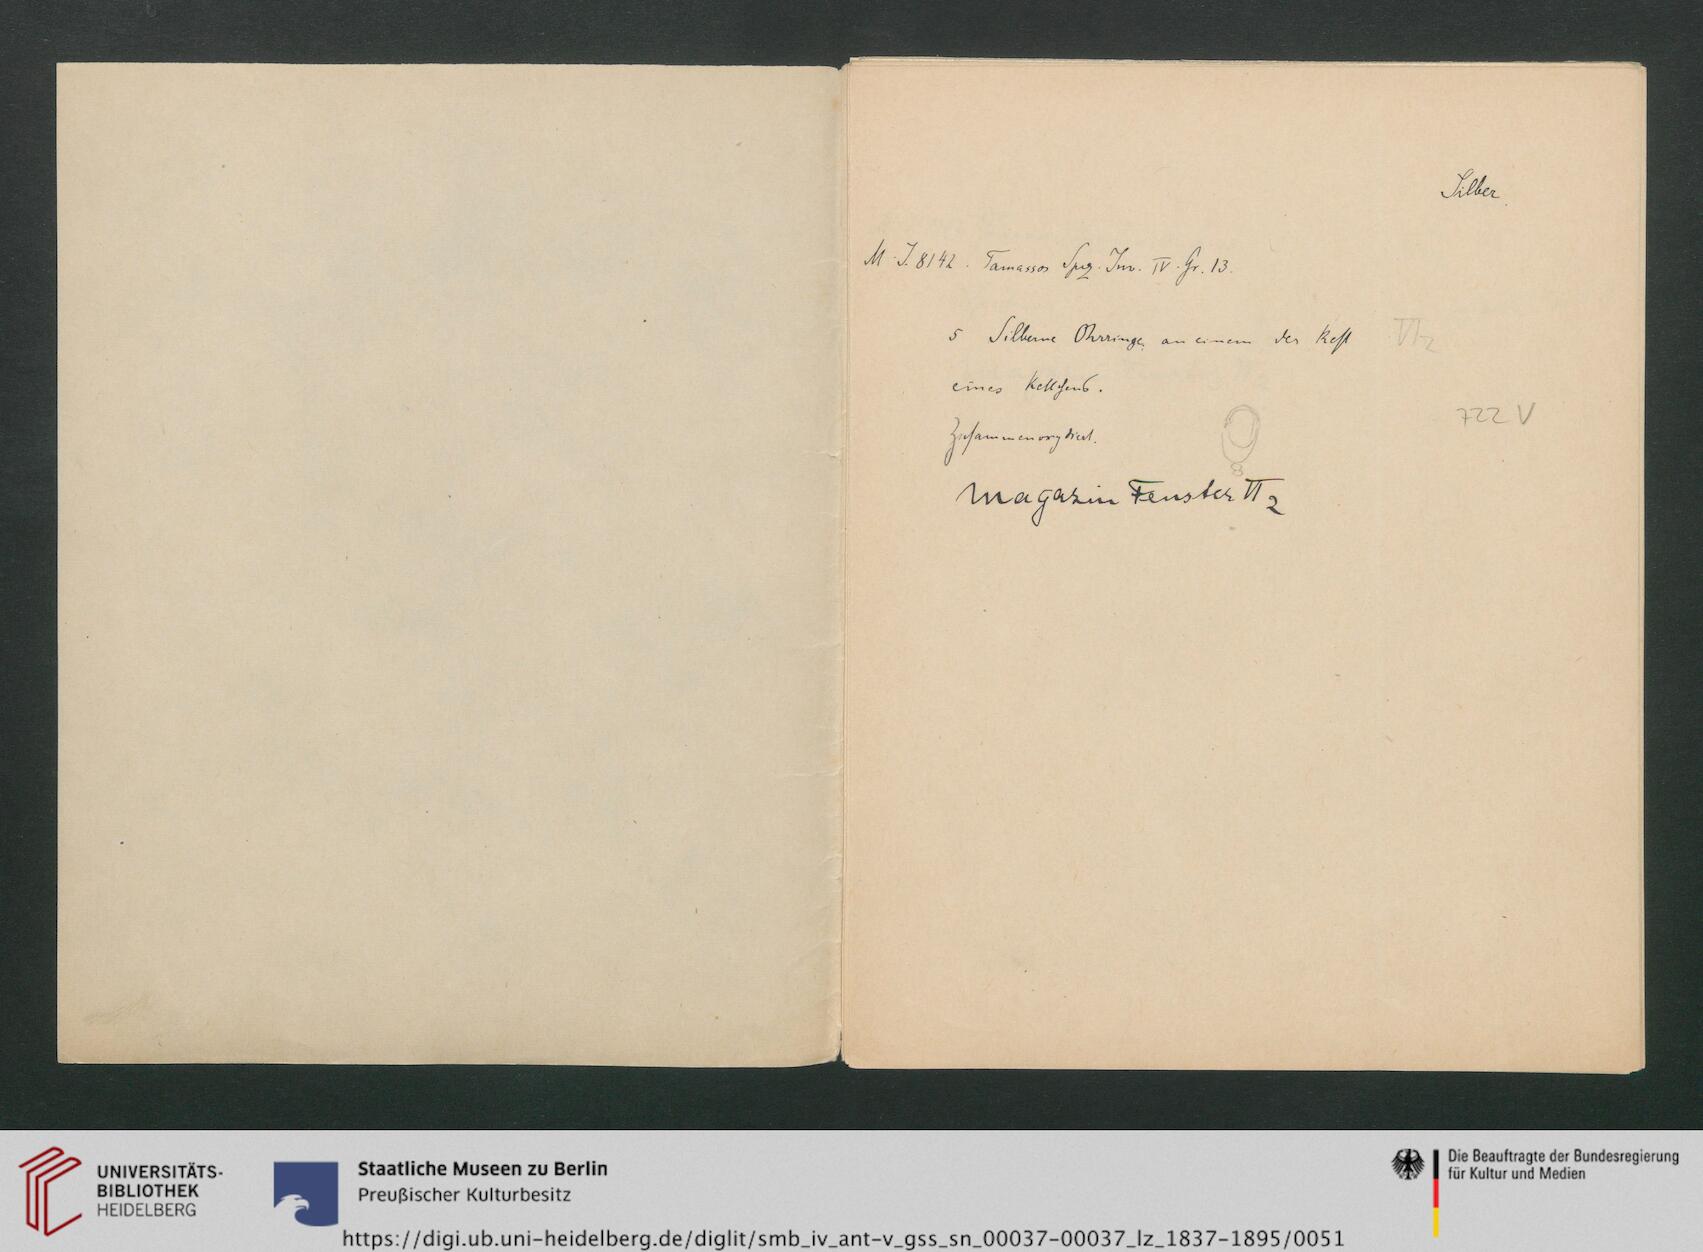 Silber.
M. J. 8142. Tamassos Spez. Inv. IV. Gr. 13.
5 Silberne Ohrringe, an einem der Rest
VI2
eines Kettchens.
722 V
Zusammenoxydiert.
8
Magazin Fenster VI 2
UNIVERSITÄTS-
BIBLIOTHEK
HEIDELBERG
Staatliche Museen zu Berlin
Preußischer Kulturbesitz
Die Beauftragte der Bundesregierung
für Kultur und Medien
https://digi.ub.uni-heidelberg.de/diglit/smb_iv_ant-v_gss_sn_00037-00037_lz_1837-1895/0051